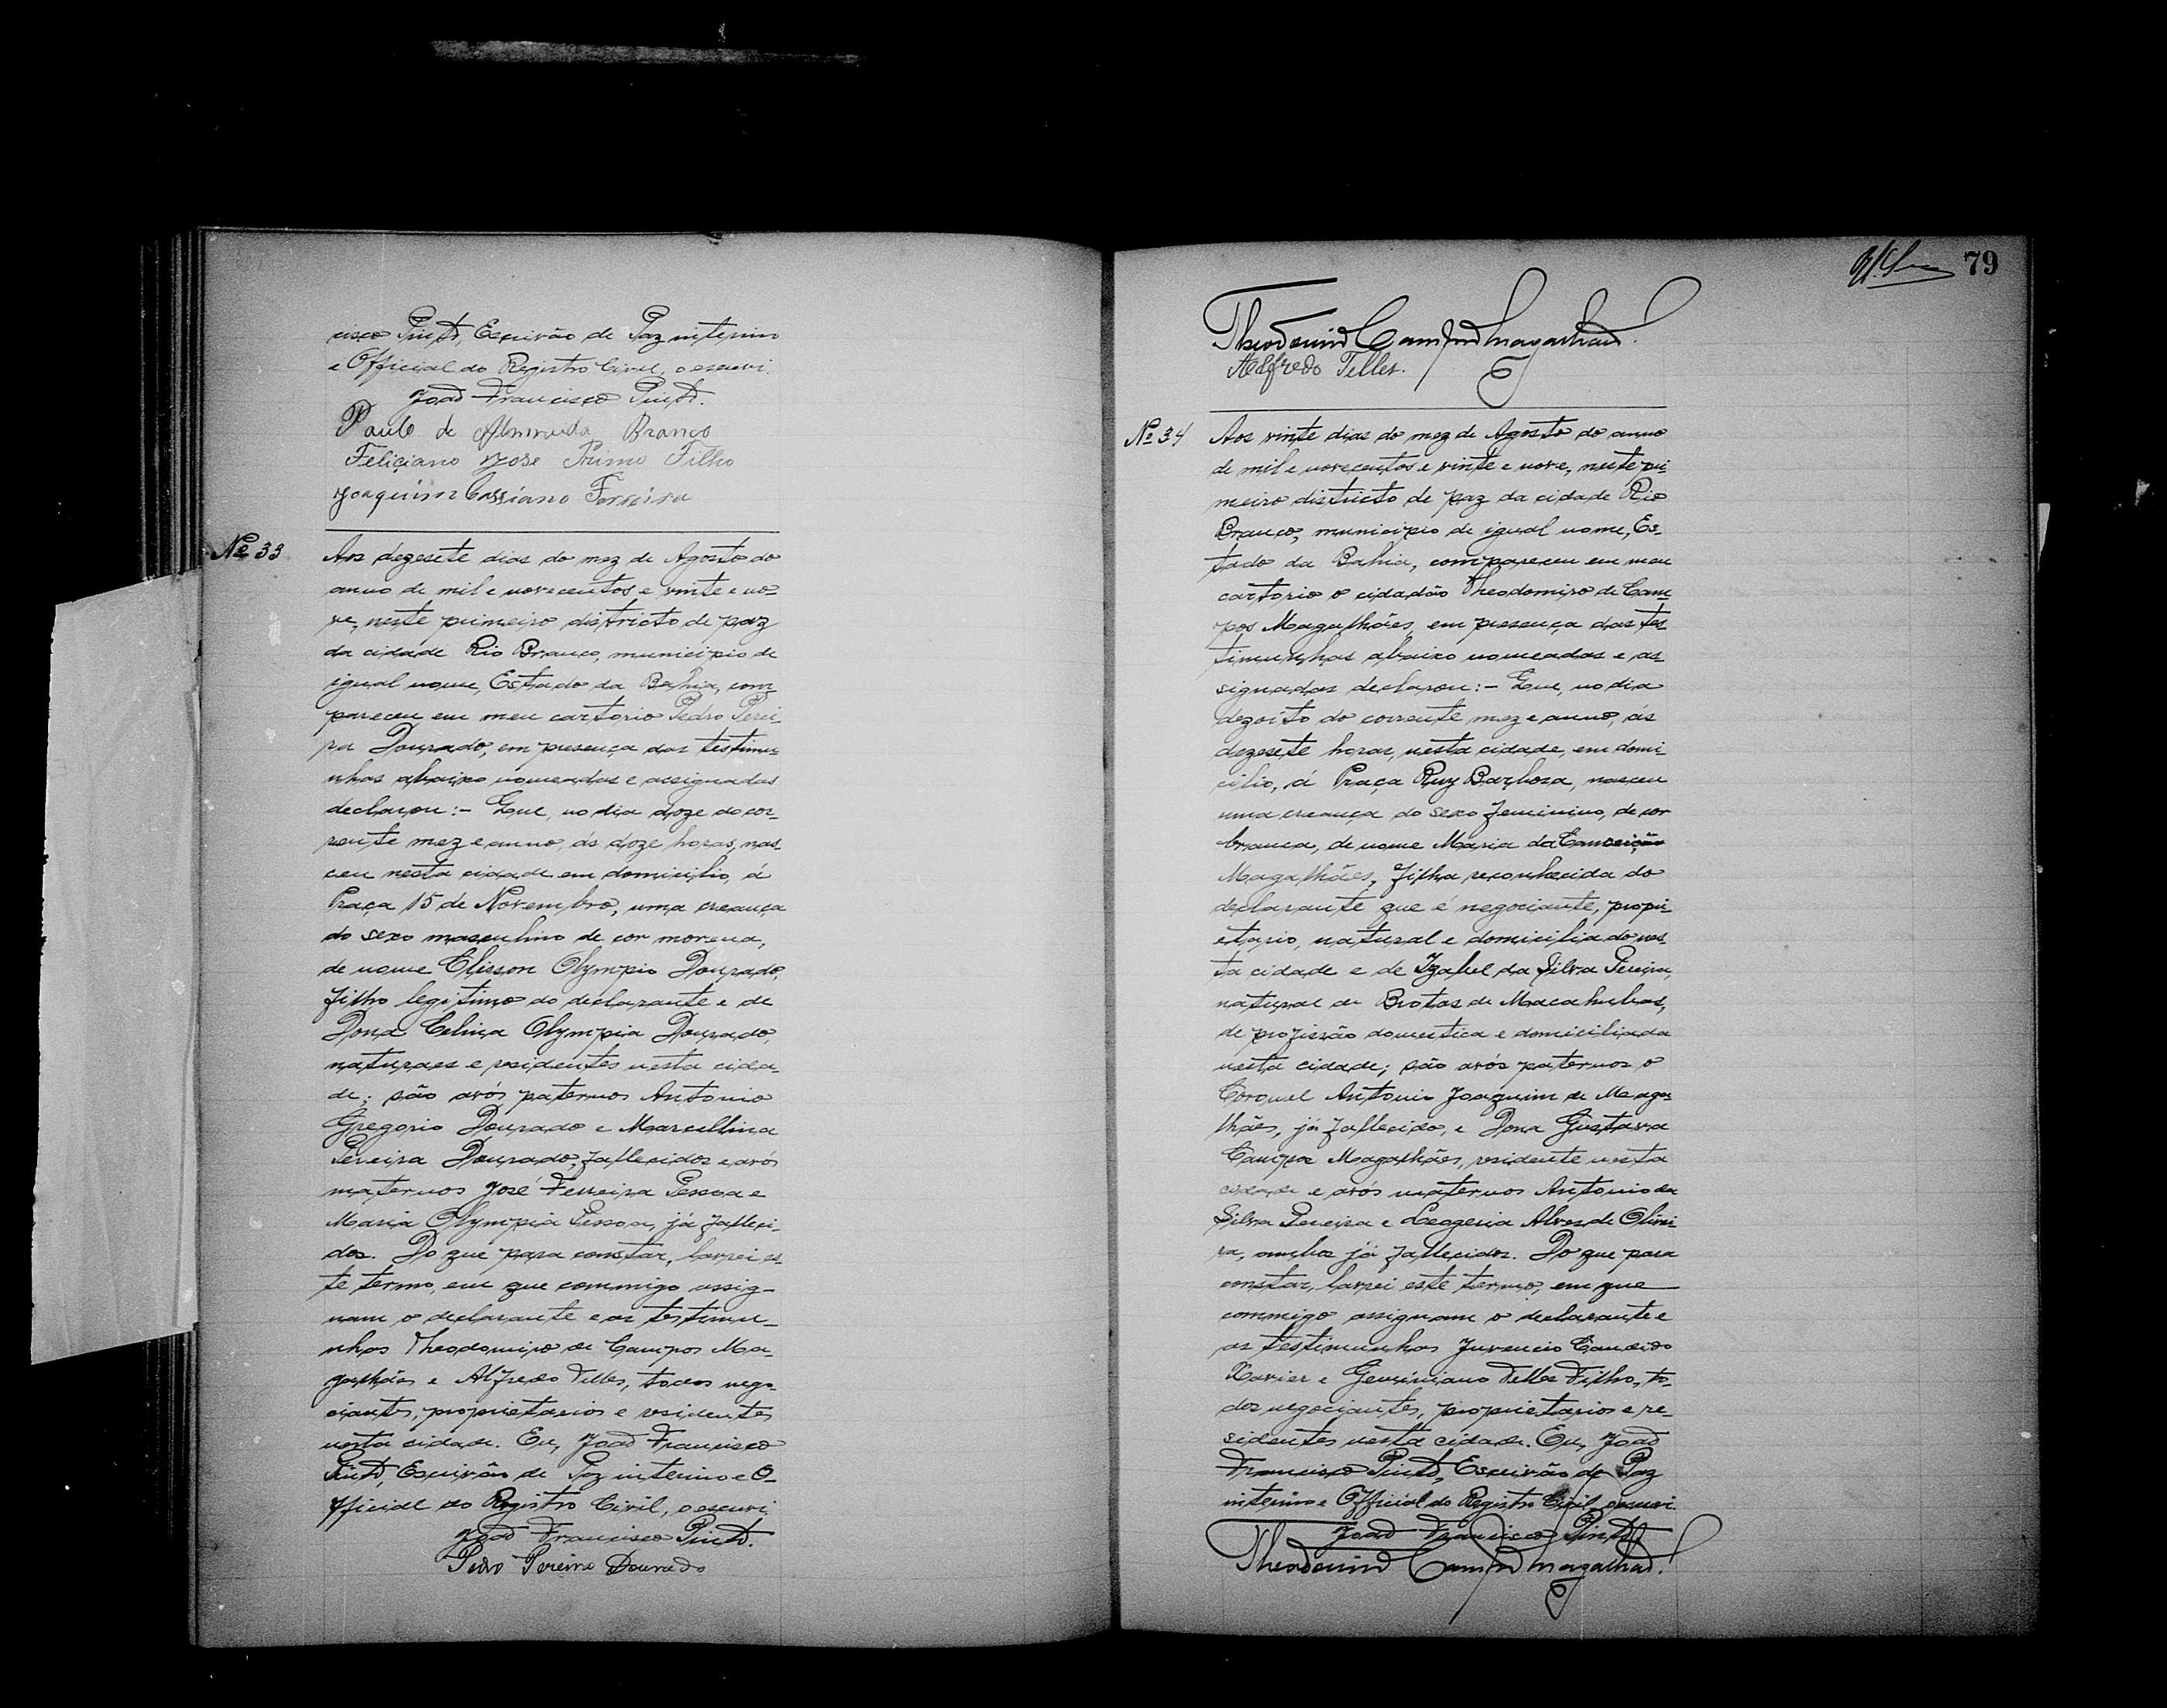 cisco Pinto, Escrivão de Paz interino
e Official do Registro Civil, o escrevi.
João Francisco Pinto.
Paulo de Almeida Branco
Feliciano José Primo Filho
Joaquim Cassiano Ferreira
Nº 33
Aos dezesete dias do mez de Agosto do
anno de mil e novecentos e vinte e no-
ve, neste primeiro districto de paz
da cidade Rio Branco, municipio de
igual nome, Estado da Bahia, com-
pareceu em meu cartorio Pedro Perei-
ra Dourado, em presença das testimu-
nhas abaixo nomeadas e assignadas
declarou:- Que, no dia doze do cor-
rente mez e anno, ás doze horas, nas-
ceu nesta cidade em domicilio, á
Praça 15 de Novembro, uma creança
do sexo masculino de cor morena,
de nome Elisson Olympio Dourado,
filho legitimo do declarante e de
Dona Celina Olympia Dourado,
naturaes e residentes nesta cida-
de; são avós paternos Antonio
Gregorio Dourado e Marcellina
Pereira Dourado, fallecidos e avós
maternos José Ferreira Pessoa e
Maria Olympia Pessoa, já falleci-
dos. Do que para constar, lavrei es-
te termo, em que commigo assig-
nam o declarante e as testimu-
nhas Theodomiro de Campos Ma-
galhães e Alfredo Telles, todos nego-
ciantes, proprietarios e residentes
nesta cidade. Eu, João Francisco
Pinto, Escrivão de Paz interino e O-
fficial do Registro Civil, o escrevi.
João Francisco Pinto.
Pedro Pereira Dourado
79
Theodomiro Campos Magalhães.
Alfredo Telles.
Nº 34
Aos vinte dias do mez de Agosto do anno
de mil e novecentos e vinte e nove, neste pri-
meiro districto de paz da cidade Rio
Branco, municipio de igual nome, Es-
tado da Bahia, compareceu em meu
cartorio o cidadão Theodomiro de Cam-
pos Magalhães, em presença das tes-
timunhas abaixo nomeadas e as-
signadas declarou:- Que, no dia
dezoito do corrente mez e anno, ás
dezesete horas, nesta cidade, em domi-
cilio, á Praça Ruy Barbosa, nasceu
uma creança do sexo feminino, de cor
branca, de nome Maria da Conceição
Magalhães, filha reconhecida do
declarante que é negociante, propri-
etario, natural e domiciliado nes-
ta cidade e de Izabel da Silva Pereira,
natural de Brotas de Macahubas,
de profissão domestica e domiciliada
nesta cidade; são avós paternos o
Coronel Antonio Joaquim de Maga-
lhães, já fallecido, e Dona Gustava
Campos Magalhães, residente nesta
cidade e avós maternos Antonio da
Silva Pereira e Leogeria Alves de Olivei-
ra, ambos já fallecidos. Do que para
constar, lavrei este termo, em que
commigo assignam o declarante e
as testimunhas Juvencio Candido
Xavier e Geminiano Telles Filho, to-
dos negociantes, proprietarios e re-
sidentes nesta cidade. Eu, João
Francisco Pinto, Escrivão de Paz
interino e Official do Registro Civil, o escrevi.
João Francisco Pinto
Theodomiro Campos Magalhães.